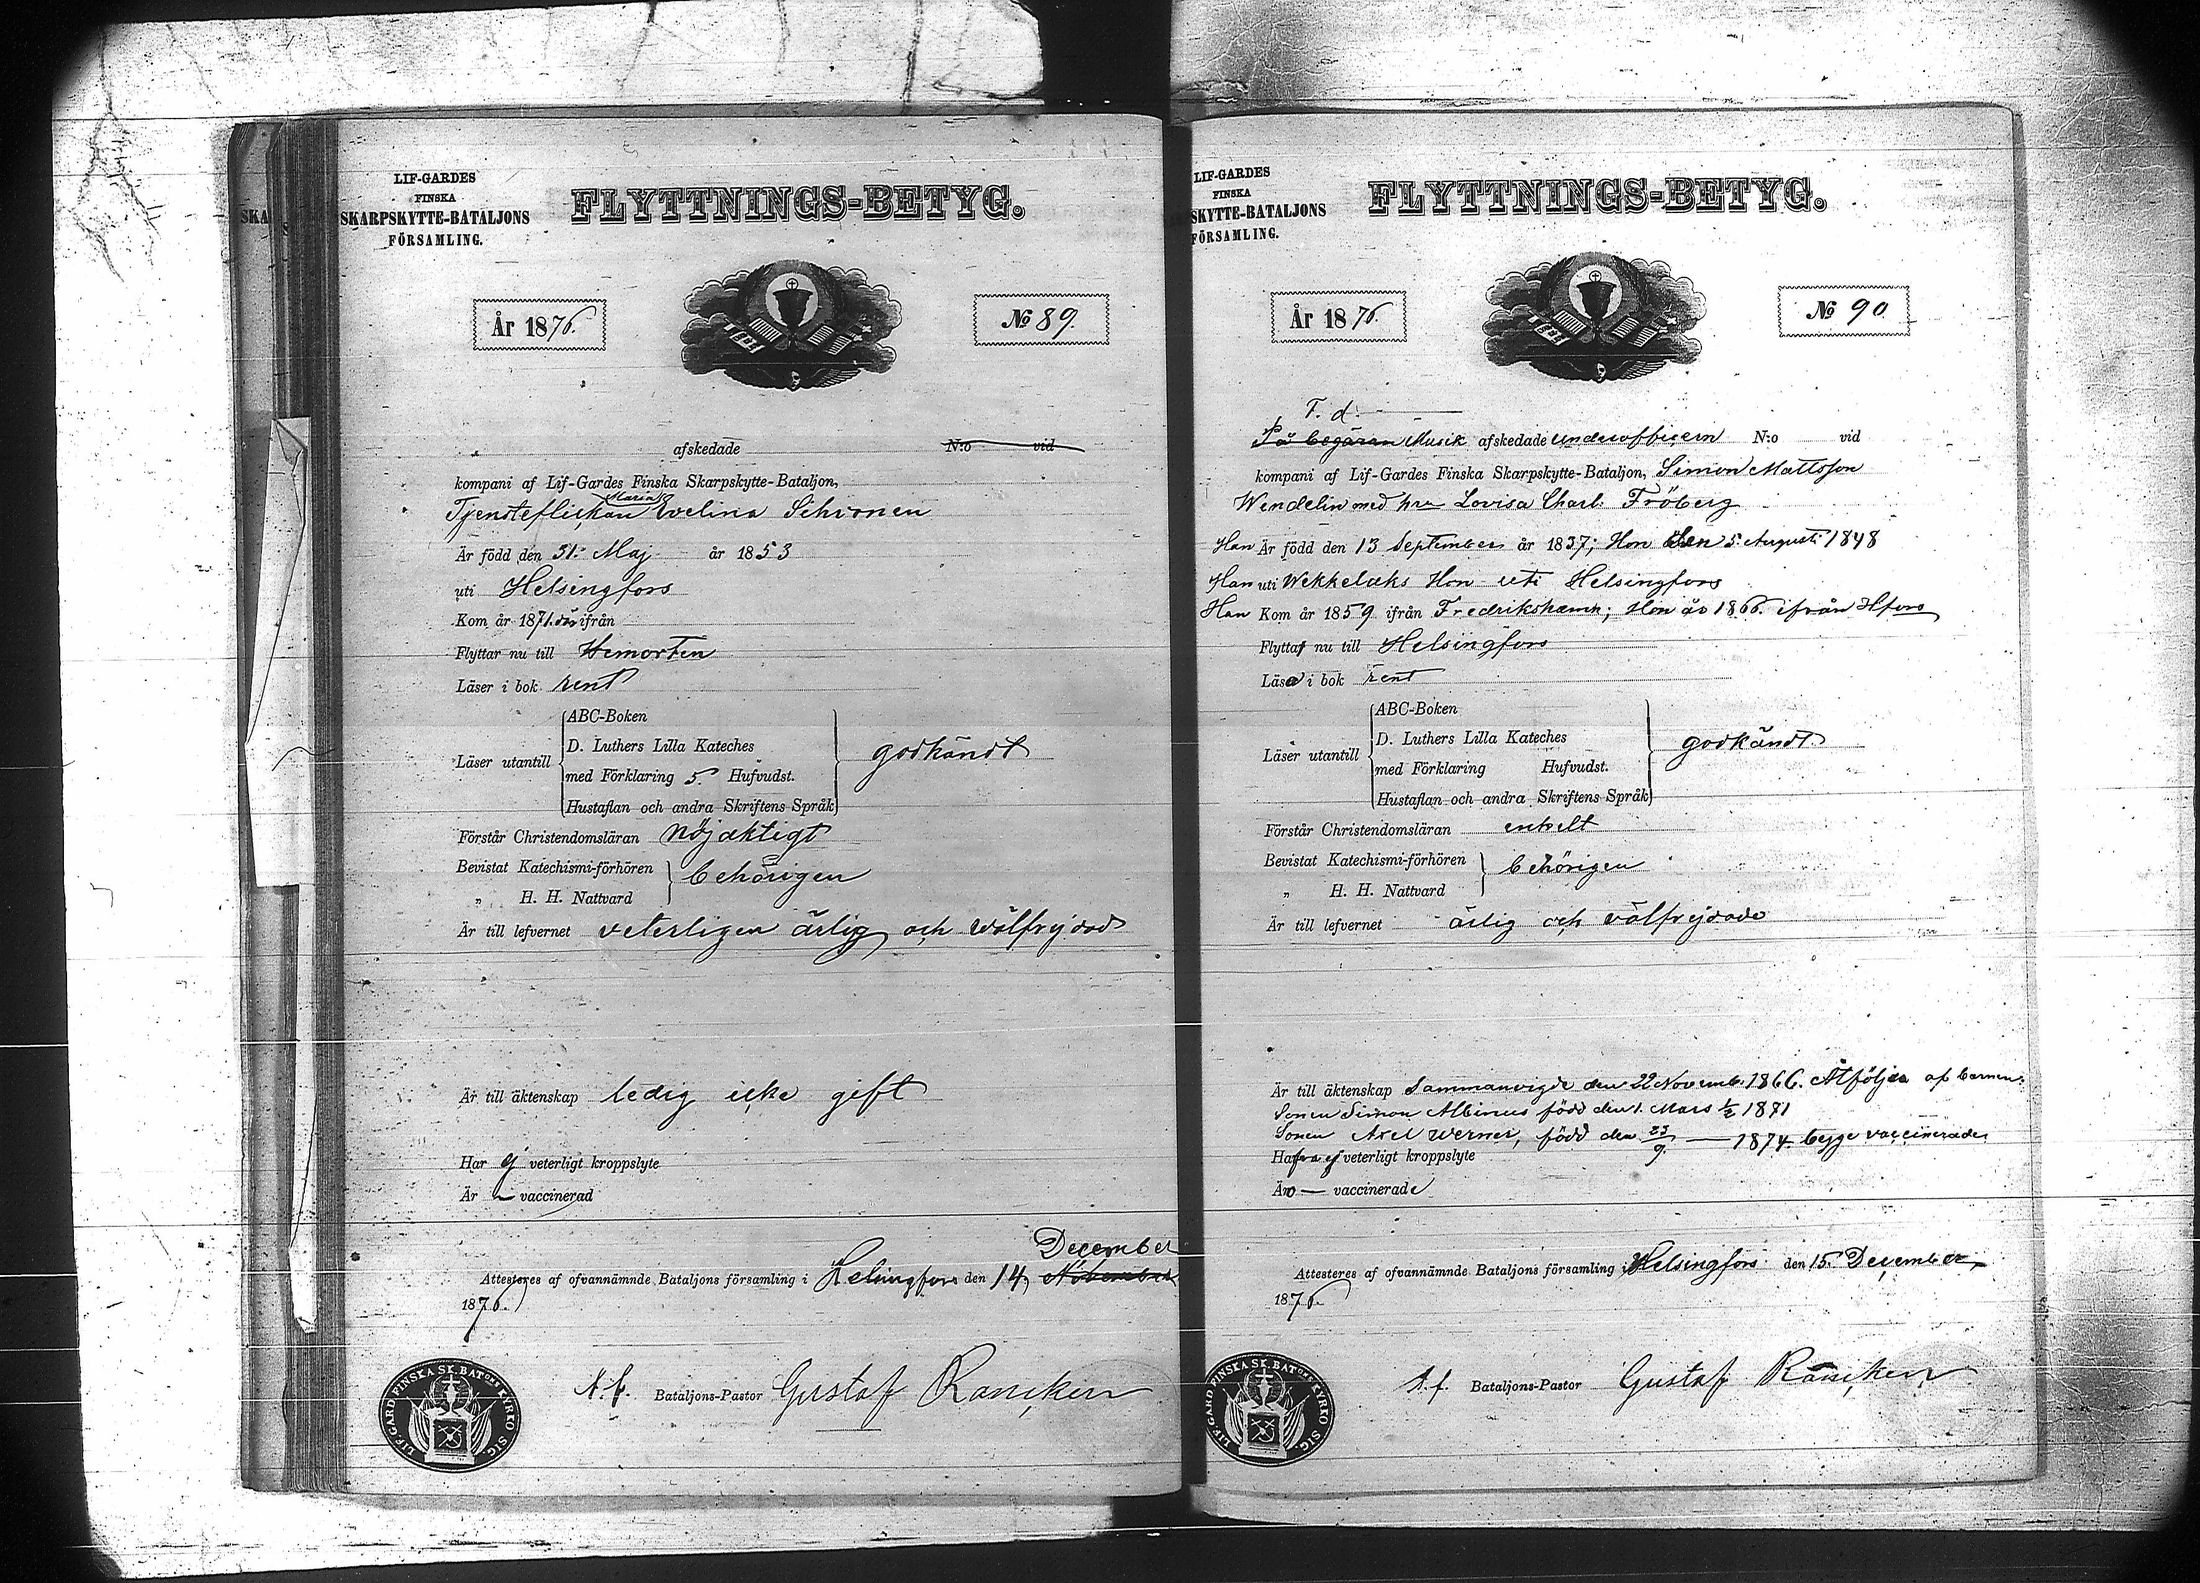 LIF-GARDES
FINSKA
SKARPSKYTTE-BATALJONS
FÖRSAMLING.
FLYTTNINGS-BETYG.
År 1876.
No 89.
afskedade N:o vid
kompani af Lif-Gardes Finska Skarpskytte-Bataljon,
Maria
Tjensteflickan Evelina Schironen
Är född den 31. Maj år 1853
uti Helsingfors
Kom år 1871. ifrån
Flyttar nu till Hemorten
Läser i bok rent
Läser utantill
ABC-Boken
D. Luthers Lilla Kateches
med Förklaring 5. Hufvudst.
Hustaflan och andra Skriftens Språk
godkändt
Förstår Christendomsläran nöjaktigt
Bevistat Katechismi-förhören
„ H. H. Nattvard
behörigen
Är till lefvernet veterligen ärlig och välfrejdad
Är till äktenskap ledig icke gift
Har ej veterligt kroppslyte
Är — vaccinerad
December
Attesteres af ofvannämnde Bataljons församling i Helsingfors den 14. November
1876.
Bataljons-Pastor Gustaf Rancken
LIF.GARD.FINSKA SK.BATONS KYRKO SIG.
LIF-GARDES
FINSKA
SKYTTE-BATALJONS
FÖRSAMLING.
FLYTTNINGS-BETYG.
År 1876.
No 90
F. d.
På begäran Musik afskedade underofficern N:o vid
kompani af Lif-Gardes Finska Skarpskytte-Bataljon, Simon Mattsson
Wendelin med hu Lovisa Charl. Fröberg
Han Är född den 13 September år 1837; Hon den 5. Augusti 1848
Han uti Wekkelaks Hon uti Helsingfors
Han Kom år 1859 ifrån Fredrikshamn; Hon år 1866. ifrån Hfors
Flytta nu till Helsingfors
Läsa i bok rent
Läser utantill
ABC-Boken
D. Luthers Lilla Kateches
med Förklaring Hufvudst.
Hustaflan och andra Skriftens Språk
godkändt.
Förstår Christendomsläran enkelt
Bevistat Katechismi-förhören
„ H. H. Nattvard
behörigen
Är till lefvernet ärlig och välfrejdade
Är till äktenskap Sammanvigde den 22 Novemb. 1866. Åtföljas af barnen:
Sonen Simon Albinus född den 1. Mars 1871
Sonen Axel Werner, född den 23/9 — 1874 begge vaccinerade
Hafva ej veterligt kroppslyte
Äro — vaccinerade
Attesteres af ofvannämnde Bataljons församling i Helsingfors den 15. December
1876.
Bataljons-Pastor Gustaf Rancken
LIF.GARD.FINSKA SK.BATONS KYRKO SIG.